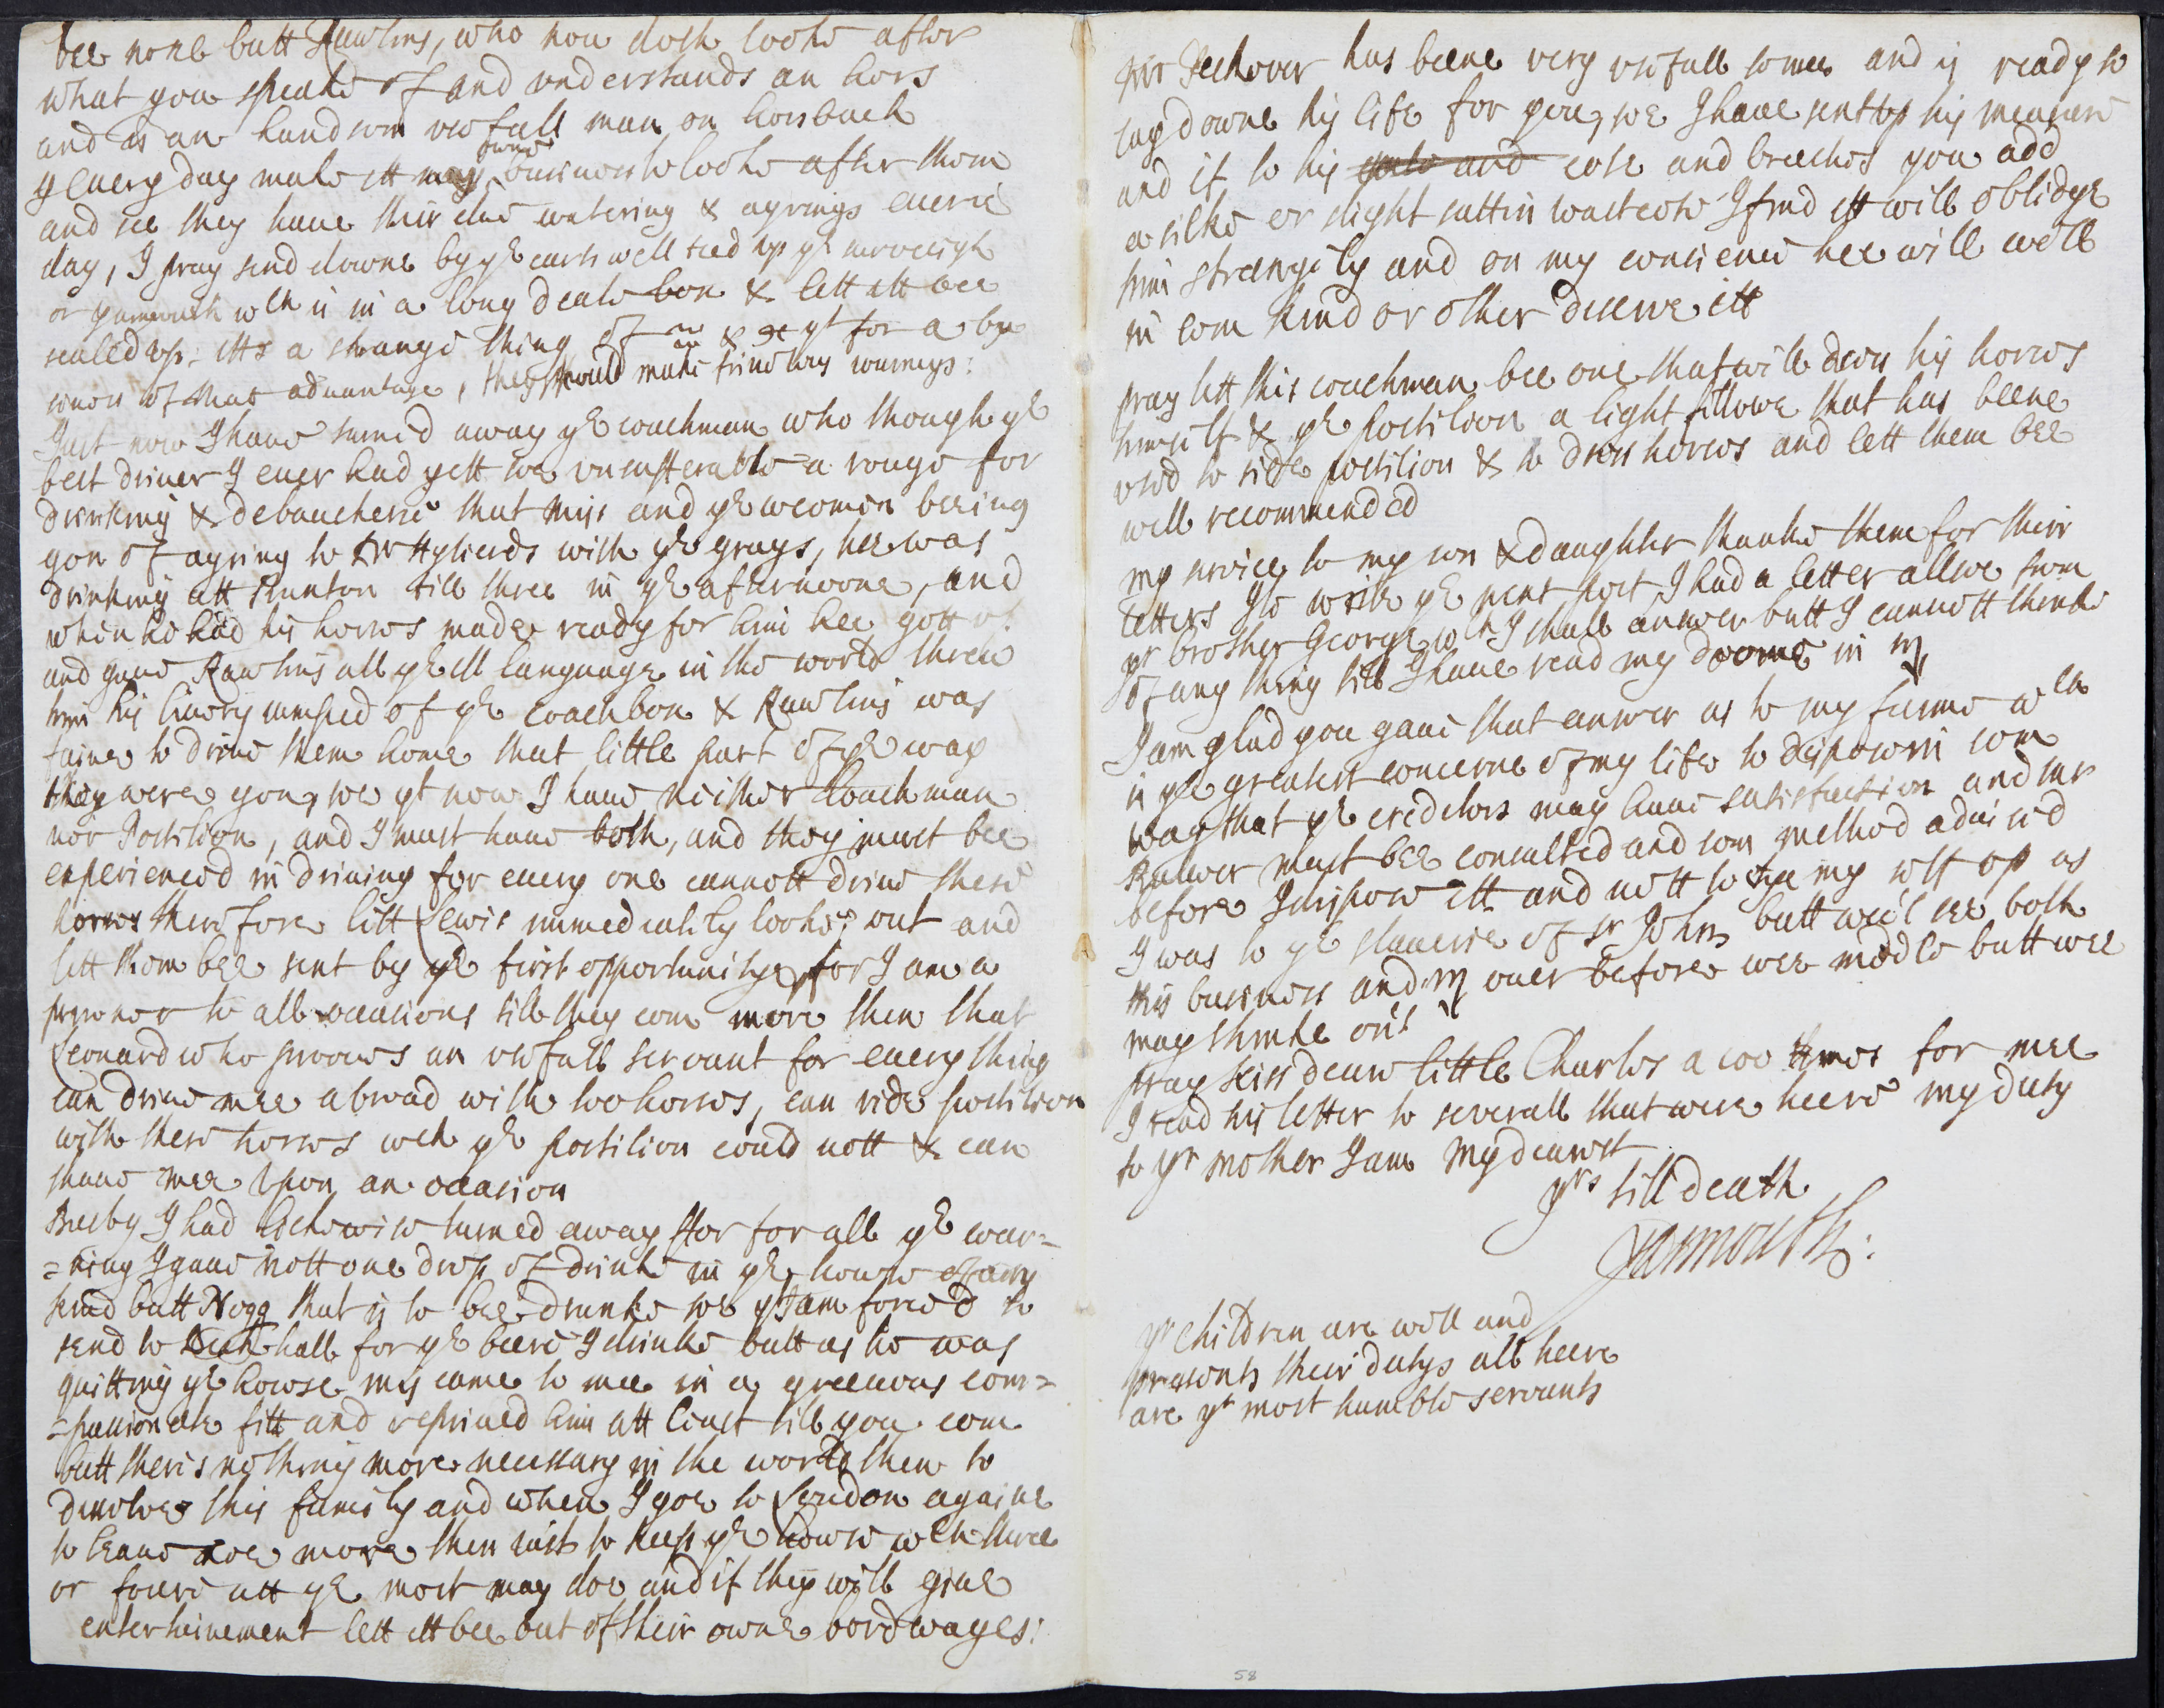 bee none butt Rawlins, who now doth looke after
what you speake of and understands an hors
and is an handsom usefull man on horsback
I every day make itt my owne buisness to looke after them
and see they have their due watering & ayrings everie
day, I pray send downe by ye carts well tied up ye
or wch is in a long deale box & lett itt bee
sealed up: itts a strange thing of & yt for a
of that advantage, they should make journeys:
Just now I have turned away ye coachman who though ye
best driver I ever had yett soe unsufferable a rouge for
drinking & debaucherie that Miss and ye weomen beeing
gon of ayring to Dr Hylierds with ye grays, hee was
drinking att Runton till three in ye afternoone, and
when he had his horses made ready for him hee gott up
and gave Rawlins all ye ill language in the world threw
him his livery jumped of ye coachbox & Rawlins was
faine to drive them home that little part of ye way
they were gon, soe yt now I have neither Coachman
nor Postilion, and I must have both, and they must bee
experienced in driving for every one cannott drive these
horses therefore lett Lewis immediately looke out and
lett them bee sent by ye first opportunitye, for I am a
prisoner to all occasions till they com more then that
Leonard who prooves an usefull servant for every thing
can drive mee abroad with too horses, can ride postilion
with these horses wch ye postilion could nott & can
shave mee upon an occasion
Busby I had likewise turned away ffor for all ye war=
=ning I gave nott one drop of drink in ye howse of any
kind butt Nogg that is to bee drunke soe yt I am forced to
send to hall for ye beere I drinke butt as he was
quitting ye howse mis came to mee in a greevous com=
=passionate fitt and reprived him att least till you com
butt theris nothing more necessary in the world then to
dissolve this family and when I goe to London againe
to leave noe more then just to keep ye howse wch three
or foure att ye most may doe and if they will give
entertainement lett itt bee out of their owne bordwages:
Mr Peckover has beene very usefull to mee and is ready to
lay downe his life for you, soe I have sent up his measure
and if to his cote and breeches you add
a silke or slight sattin wastcote I find itt will oblidge
him strangely and on my concience hee will well
in som kind or other deserve itt
pray lett this coachman bee one that will dress his horses
himself & ye postilion a light fellowe that has beene
used to ride postilion & to dress horses and lett them bee
well recommended
my service to my son & daughter thanke them for their
letters Ile write ye next post, I had a letter allsoe from
yr brother George wch I shall answer butt I cannott thinke
of any thing till I have read my doome in
I am glad you gave that answer as to my farme wch
is ye greatest concerne of my life to dispose in som
way that ye creditors may have satisfaction and mr
must bee consulted and som method advised
before I dispose itt and nott to tye my self up as
I was to ye slaverie of Sr John butt wee'l see both
this buisness and over before wee medle butt wee
may thinke on't
pray kiss deare little Charles a 100 times for mee
I read his letter to severall that were heere my duty
to yr mother I am My dearest
yrs till death
Yarmouth:
yr children are well and
presents their dutys all heere
are yr most humble servants
58